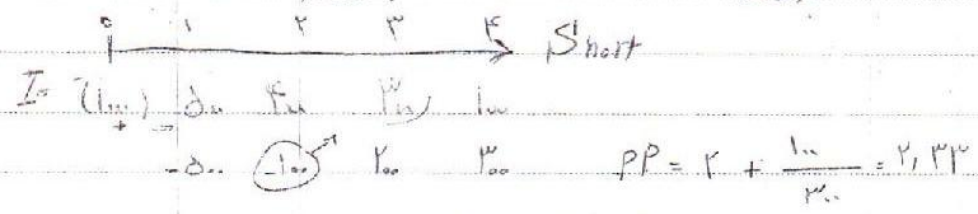 ۰ ۱ ۲ ۳ ۴ Short
I = (۱۰۰۰) ۵۰۰ ۴۰۰ ۳۰۰ ۱۰۰
+ -
-۵۰۰ -۱۰۰ ۲۰۰ ۳۰۰ PP = ۲ + ۱۰۰ / ۳۰۰ = ۲,۳۳